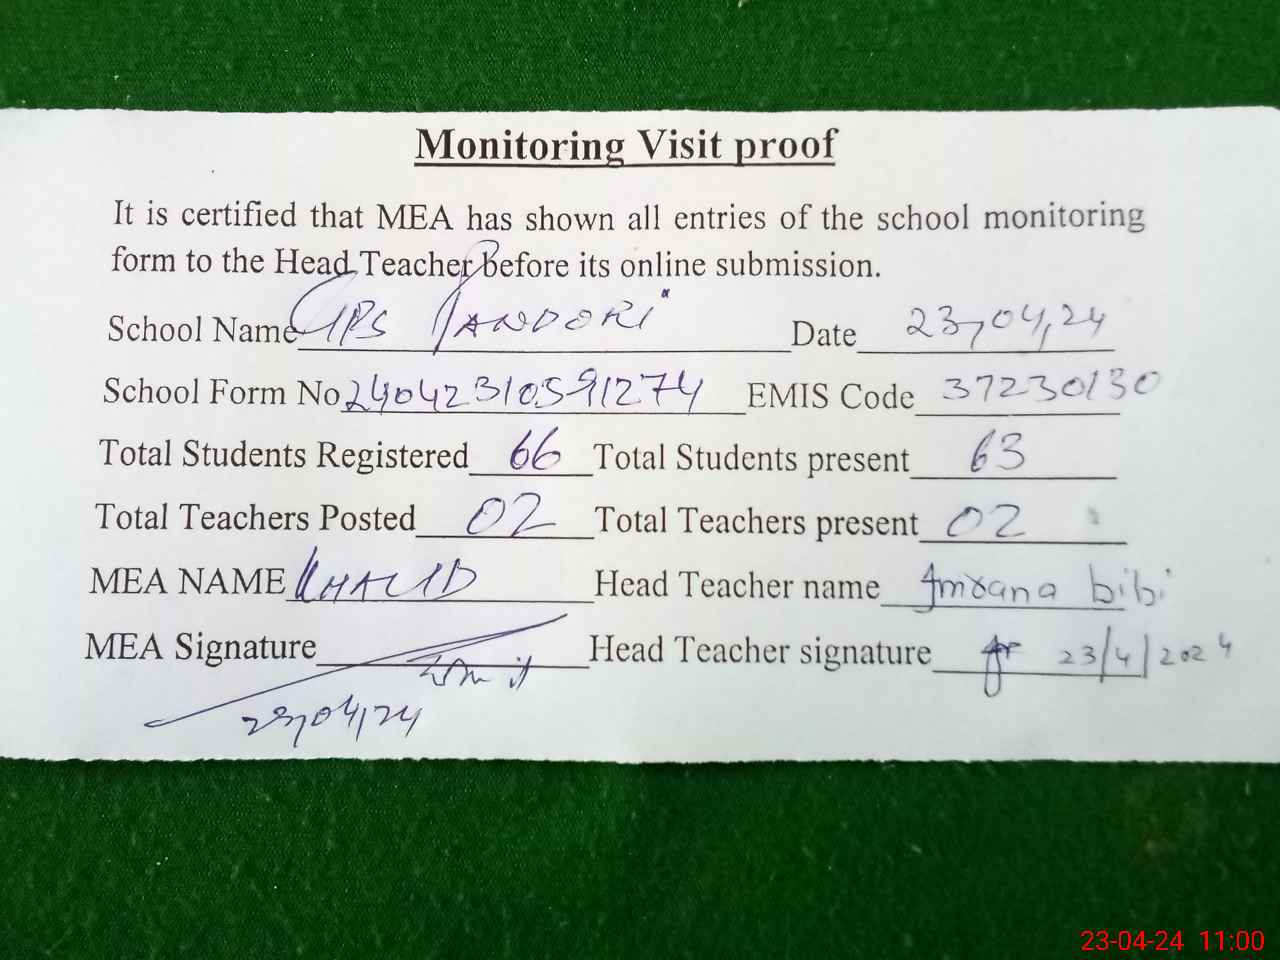 Monitoring Visit proof
It is certified that MEA has shown all entries of the school monitoring
form to the Head Teacher Before its online submission.
School Name GPS PANDORI Date 23,04,24
School Form No 24042310591274 EMIS Code 37230130
Total Students Registered 66 Total Students present 63
Total Teachers Posted 02 Total Teachers present 02
MEA NAME KHALID Head Teacher name Imrana bibi
MEA Signature Head Teacher signature 23/4/2024
23,04,24
23-04-24 11:00